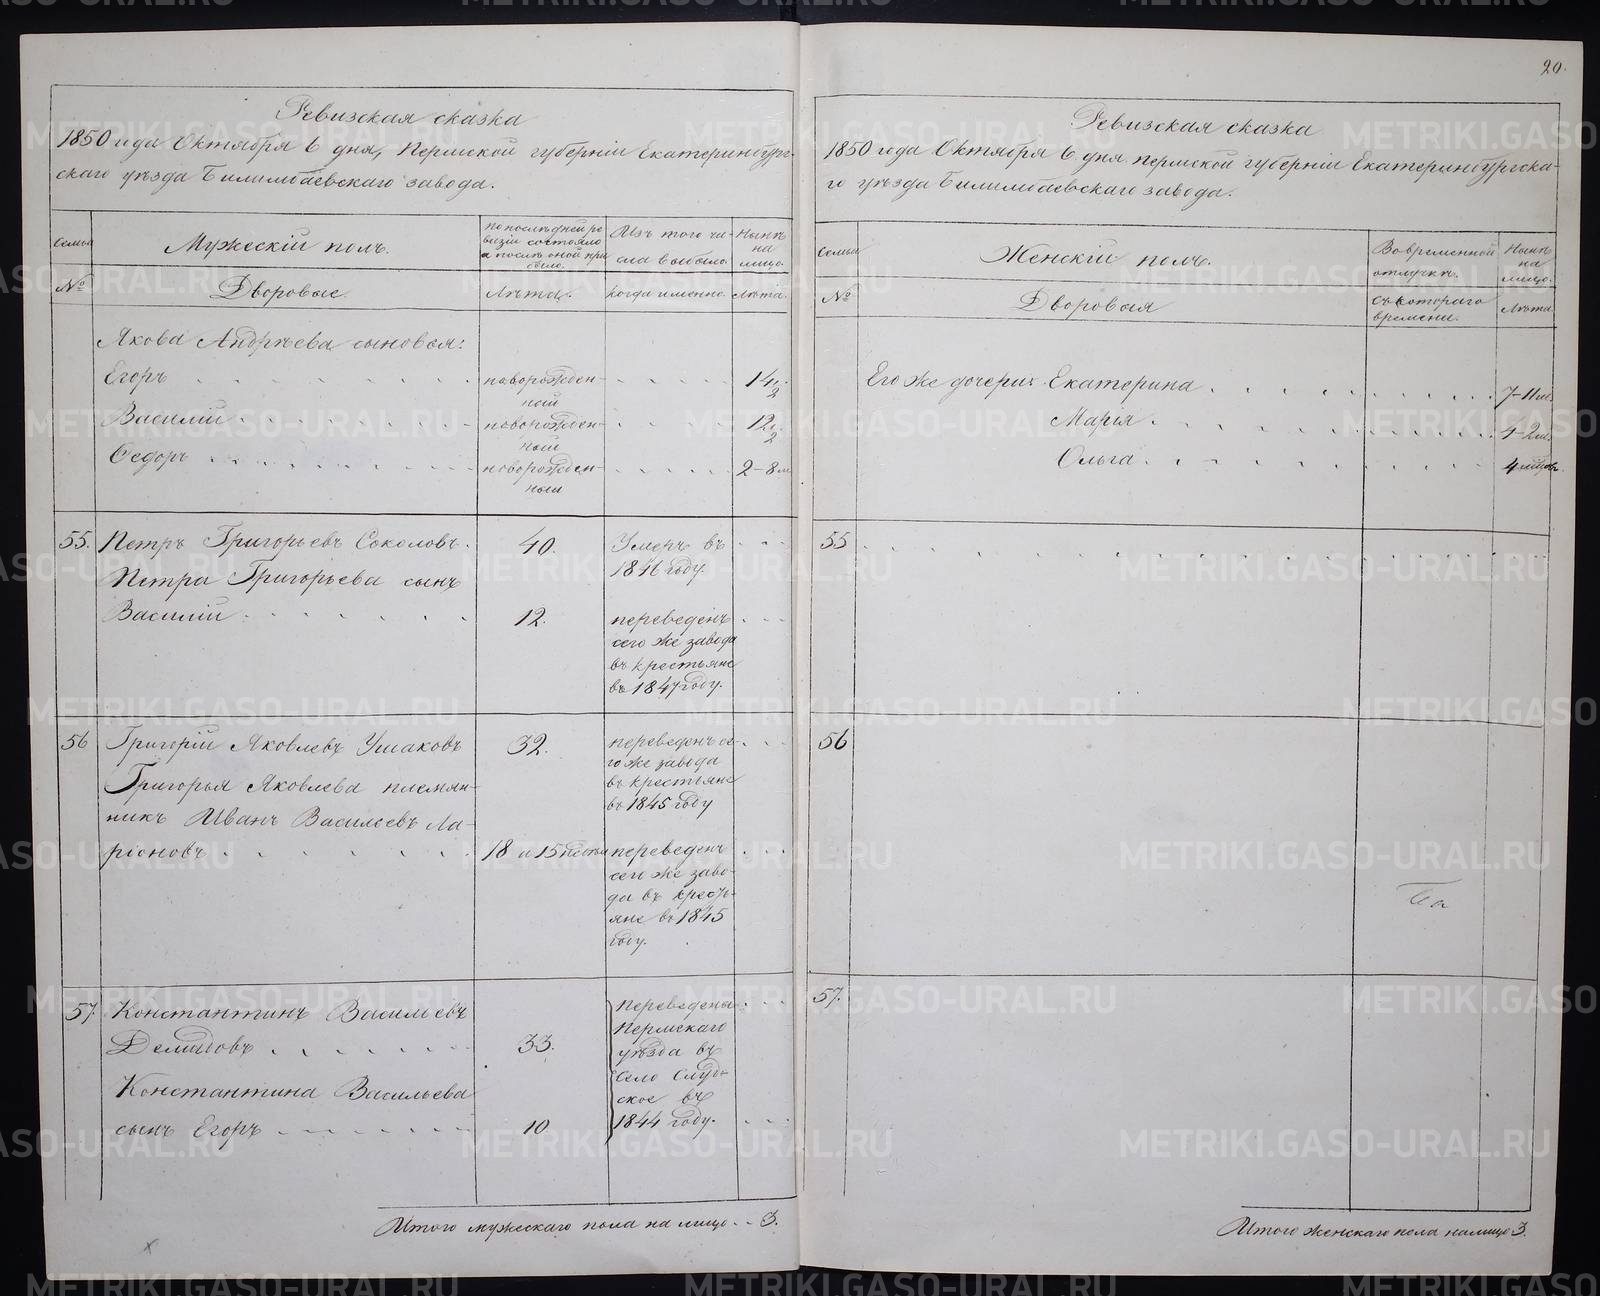 20.
Ревизская сказка
1850 года Октября 6 дня, Пермской губерніи Екатеринбург-
скаго уѣзда Билимбаевскаго завода.
Семьи
Мужескій полъ.
По послѣдней ре
визіи состояло
а послѣ оной при
было.
Изъ того чи-
сла выбыло.
Нынѣ
на
лицо.
№
Дворовые.
Лѣта.
когда именно.
Лѣта.
Якова Андрѣева сыновья:
Егоръ новорожден- 14 1/2
ный
Василій новорожден- 12 1/2
ный
Ѳедоръ новорожден- 2-8 м
ный
55. Петръ Григорьевъ Соколовъ. 40. Умеръ въ
1846 году.
Петра Григорьева сынъ
Василій 12. переведенъ
сего же завода
въ крестьяне
въ 1847 году.
56 Григорій Яковлевъ Ушаковъ 32. переведенъ се-
го же завода
въ крестьяне
въ 1845 году
Григорья Яковлева племян-
никъ Иванъ Васильевъ Ла-
ріоновъ 18 и 15 переведенъ
сего же заво-
да въ кресть-
яне въ 1845
году.
57 Константинъ Васильевъ
Демидовъ 33.
Константина Васильева
сынъ Егоръ 10
Переведены
Пермскаго
уѣзда въ
Село Слуд-
ское въ
1844 году.
Итого мужескаго пола на лицо 3.
Ревизская сказка
1850 года Октября 6 дня Пермской губерніи Екатеринбургска-
го уѣзда Билимбаевскаго завода.
Семьи
Женскій полъ.
Во временной
отлучкѣ.
Нынѣ
на
лицо.
№
Дворовыя
съ котораго
времени.
Лѣта
Его же дочери: Екатерина 7-11 м.
Марія 4-2 м.
Ольга 4 мѣсяц.
55
56
57.
Итого женскаго пола налицо 3.
METRIKI.GASO-URAL.RU